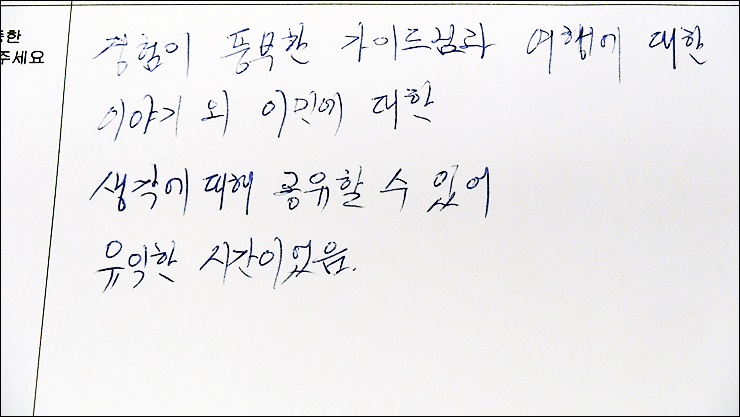 중한
주세요
경험이 풍부한 가이드님과 여행에 대한
이야기 외 이민에 대한
생각에 대해 공유할 수 있어
유익한 시간이었음.